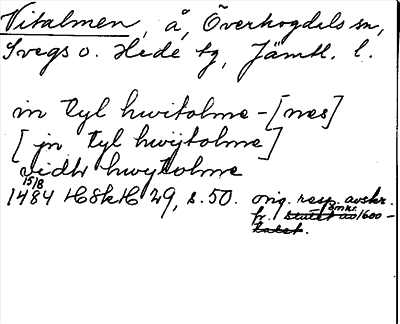 Vitalmen, å, Överhogdals sn,
Svegs o. Hede tg, Jämtl. l.
in tyl hwitolme - [nes]
[jn tyl hwijtolme]
vidh hwytolme
15/8
1484 HSH 29, s. 50. orig. resp. avskr.
fr. omkr. 1600-